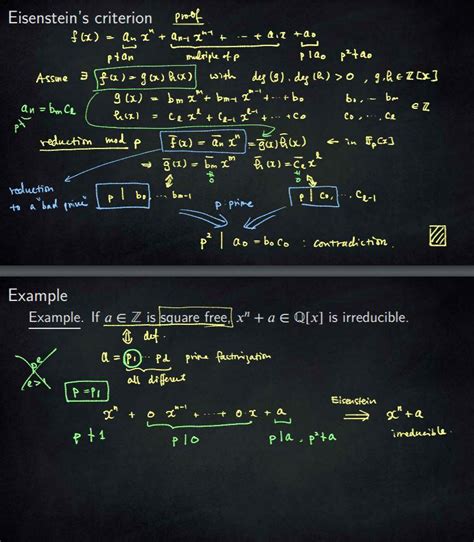 Eisenstein's criterion proof
f(x) = aₙxⁿ + aₙ₋₁xⁿ⁻¹ + ⋯ + a₁x + a₀
p∤aₙ multiple of p p|a₀ p²∤a₀
Assume ∃ f(x) = g(x)h(x) with deg(g), deg(h) > 0, g, h ∈ ℤ[x]
aₙ = bₘcₗ
p∤
g(x) = bₘxᵐ + bₘ₋₁xᵐ⁻¹ + ⋯ + b₀ b₀, ⋯ bₘ
h(x) = cₗxˡ + cₗ₋₁xˡ⁻¹ + ⋯ + c₀ c₀, ⋯, cₗ ∈ ℤ
reduction mod p f̄(x) = āₙxⁿ = ḡ(x)h̄(x) ← in 𝔽ₚ[x]
⇒ ḡ(x) = b̄ₘxᵐ h̄(x) = c̄ₗxˡ
reduction
to a "bad prime"
p | b₀, ⋯ bₘ₋₁ p | c₀, ⋯ cₗ₋₁
p: prime
p² | a₀ = b₀c₀ : contradiction.
Example
Example. If a ∈ ℤ is square free, xⁿ + a ∈ ℚ[x] is irreducible.
⇕ def.
a = p₁ ⋯ pₗ prime factorization
all different
pᵉ
e>1
p = p₁
xⁿ + 0·xⁿ⁻¹ + ⋯ + 0·x + a Eisenstein ⇒ xⁿ + a
p∤1 p|0 p|a, p²∤a irreducible.